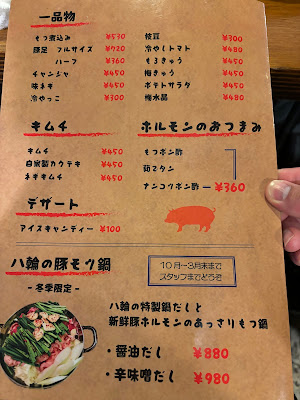 一品物
もつ煮込み ¥530
豚足 フルサイズ ¥720
ハーフ ¥360
チャンジャ ¥450
味ネギ ¥450
冷やっこ ¥300
枝豆 ¥300
冷やしトマト ¥480
もろきゅう ¥450
梅きゅう ¥450
ポテトサラダ ¥450
梅水晶 ¥480
キムチ
キムチ ¥450
自家製カクテキ ¥450
ネギキムチ ¥450
ホルモンのおつまみ
もつポン酢
茹でタン
ナンコツポン酢 ¥360
デザート
アイスキャンティー ¥100
八輪の豚モツ鍋
- 冬季限定 -
10月~3月末まで
スタッフまでどうぞ
八輪の特製鍋だしと
新鮮豚ホルモンのあっさりもつ鍋
・醤油だし ¥880
・辛味噌だし ¥980